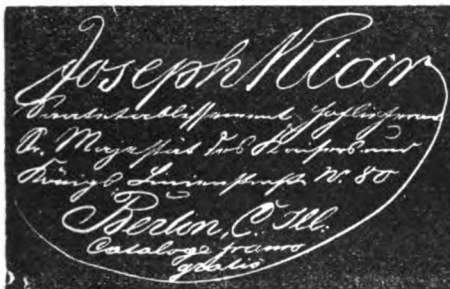 Joseph Klar
Samenetablissement Hoflieferant
Sr. Majestät des Kaisers und
Königs. Linienstraße N. 80
Berlin, C. Ill.
Cataloge franco
gratis